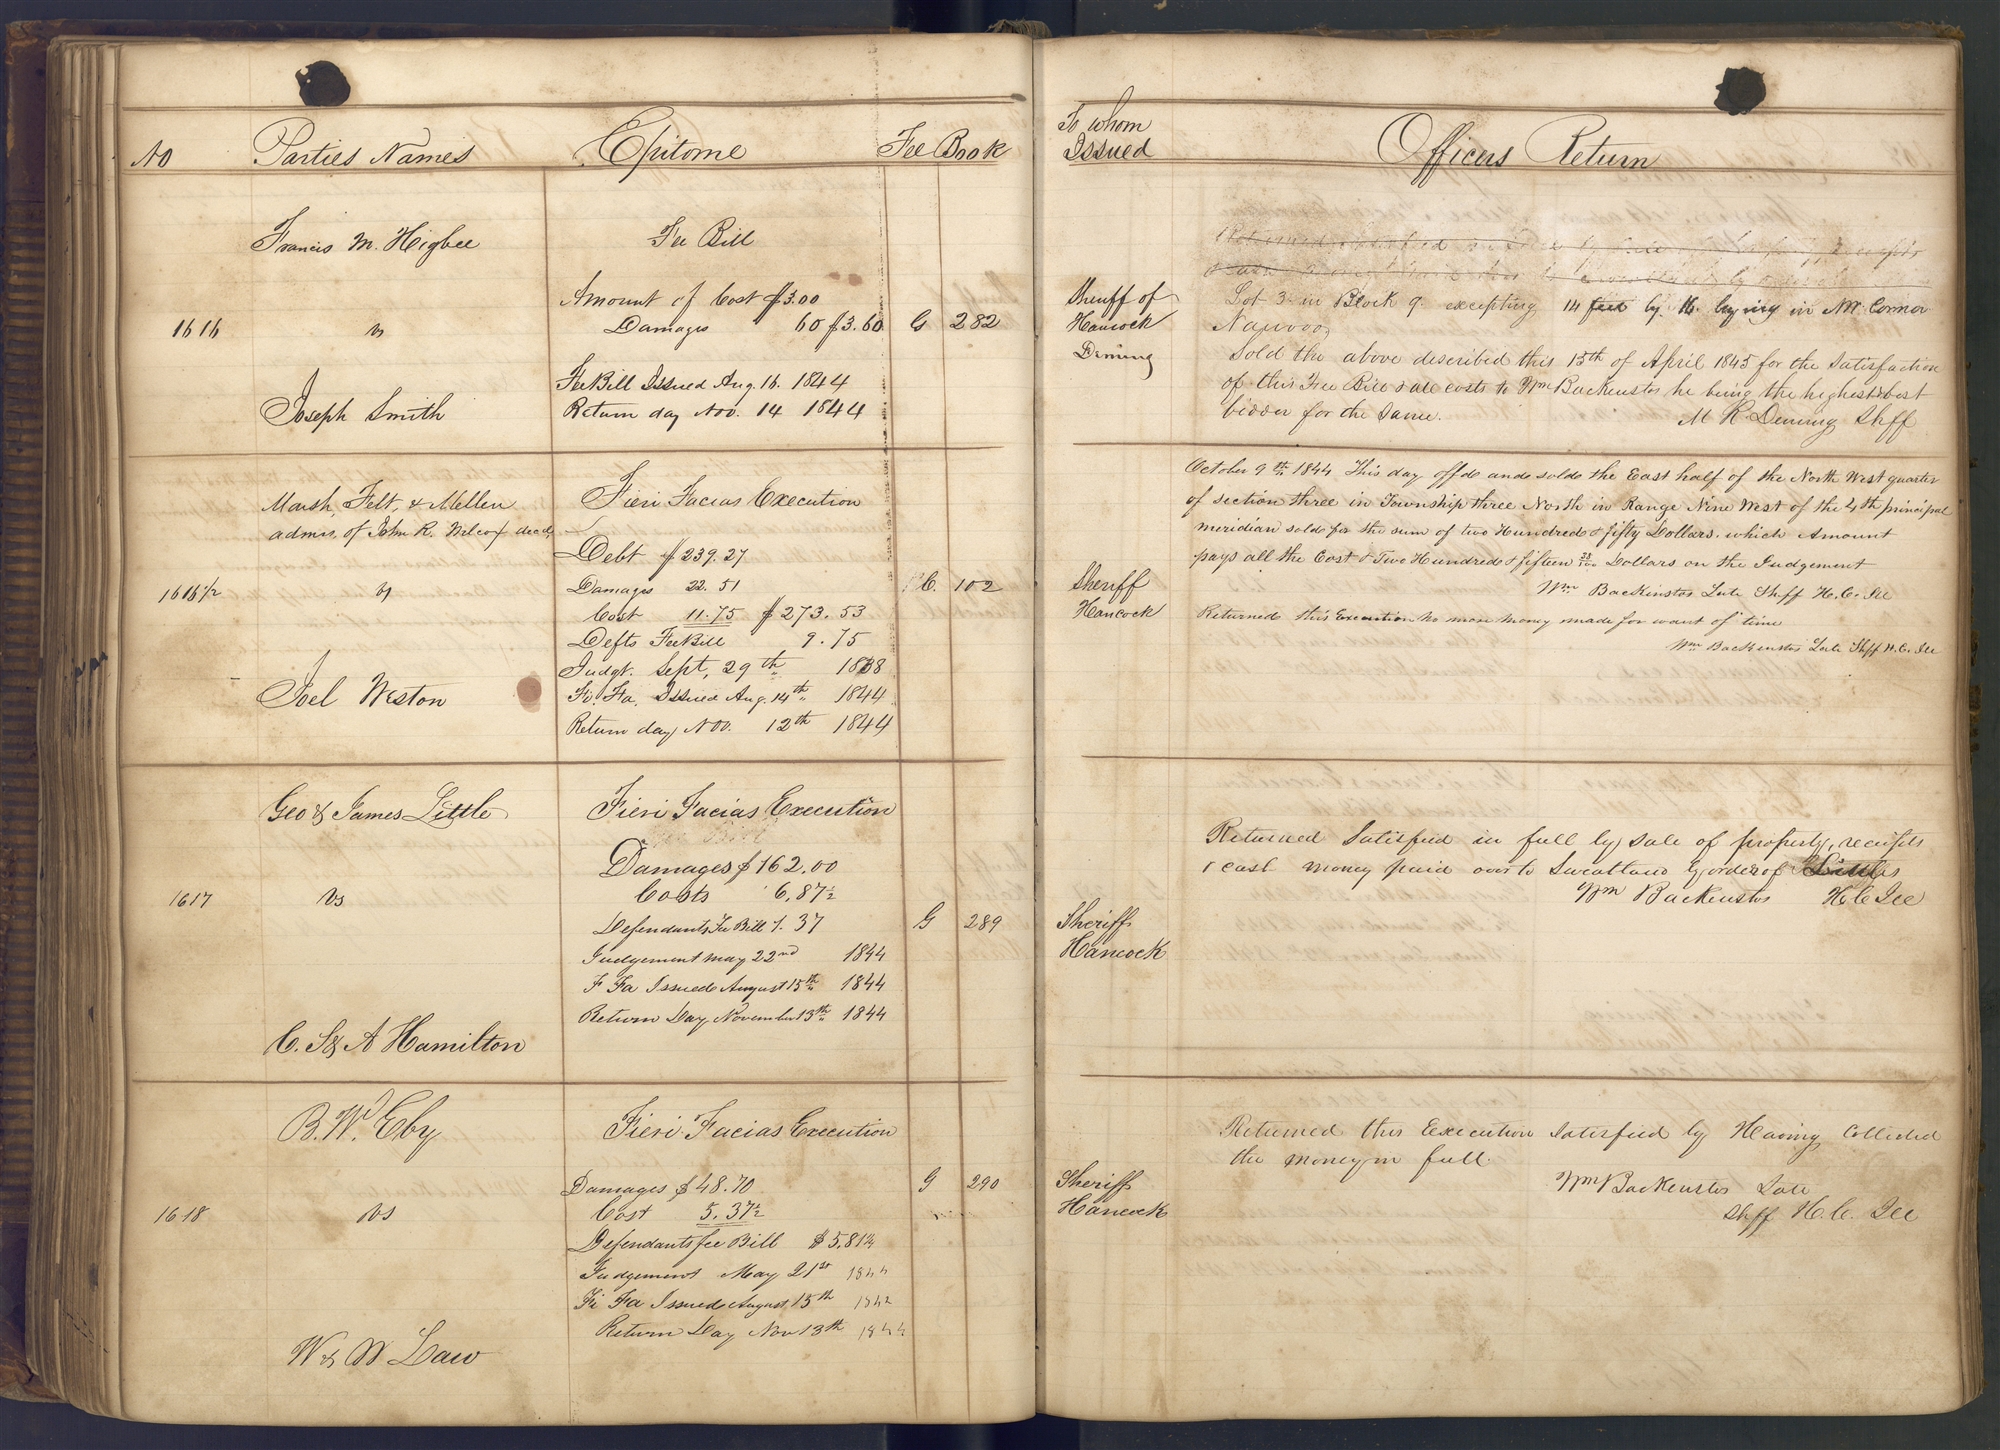 NO Parties Names Epitome Fee Book
Francis M. Higbee
1616 vs
Joseph Smith
Fee Bill
Amount of Cost $3.00
Damages 60 $3.60
G 282
FeeBill Issued Aug. 16. 1844
Return day Nov. 14 1844
Marsh, Felt, & Mellen
admrs. of John R. Wilcox decd,
1616 1/2 vs
Joel Weston
Fieri Facias Execution
Debt $239.27
Damages 22.51
Cost 11.75 $273.53
102
Defts FeeBill 9.75
Judgt. Sept, 29th 1838
Fi. Fa. Issued Aug. 14th 1844
Return day Nov. 12th 1844
Geo & James Little
1617 vs
C. S & A Hamilton
Fieri Facias Execution
Damages $162.00
Costs 6,87½
Defendants Fee Bill 1.37
G 289
Judgement may 22nd 1844
F Fa Issued August 15th 1844
Return Day November 13th 1844
B. W. Eby
1618 vs
W & W Law
Fieri Facias Execution
Damages $48.70
G 290
Cost 5.37½
Defendants fee Bill $5.81¼
Judgement May 21st 1844
Fi Fa Issued August 15th 1844
Return Day Nov 13th 1844
To whom
Issued
Officers Return
Sheriff of
Hancock
Deming
Lot 3 in Block 9 excepting 14 feet by 16. lying in NW Cornor
Nauvoo
Sold the above described this 15th of April 1845 for the Satisfaction
of this Fee Bill & all costs to Wm Backenstos he being the highest & best
bidder for the same.
M R. Deming Shff
Sheriff
Hancock
October 9th 1844 This day offd and sold the East half of the North West quarter
of section three in Township three North in Range Nine West of the 4th principal
meridian sold for the sum of two Hundred & fifty Dollars. which Amount
pays all the Cost & Two Hundred & fifteen Dollars on the Judgement
Wm Backinstos Late Shff H. C. Ill
Returned this Execution no more money made for want of time
Wm Backenstos Late Shff H. C. Ill
Sheriff
Hancock
Returned Satisfied in full by sale of property, receipts
& cash money paid over to Sweatland by order of Littles
Wm Backenstos H. C. Ill
Sheriff
Hancock
Returned this Execution Satisfied by Having Collected
the money in full.
Wm Backenstos Late
Shff H. C. Ill